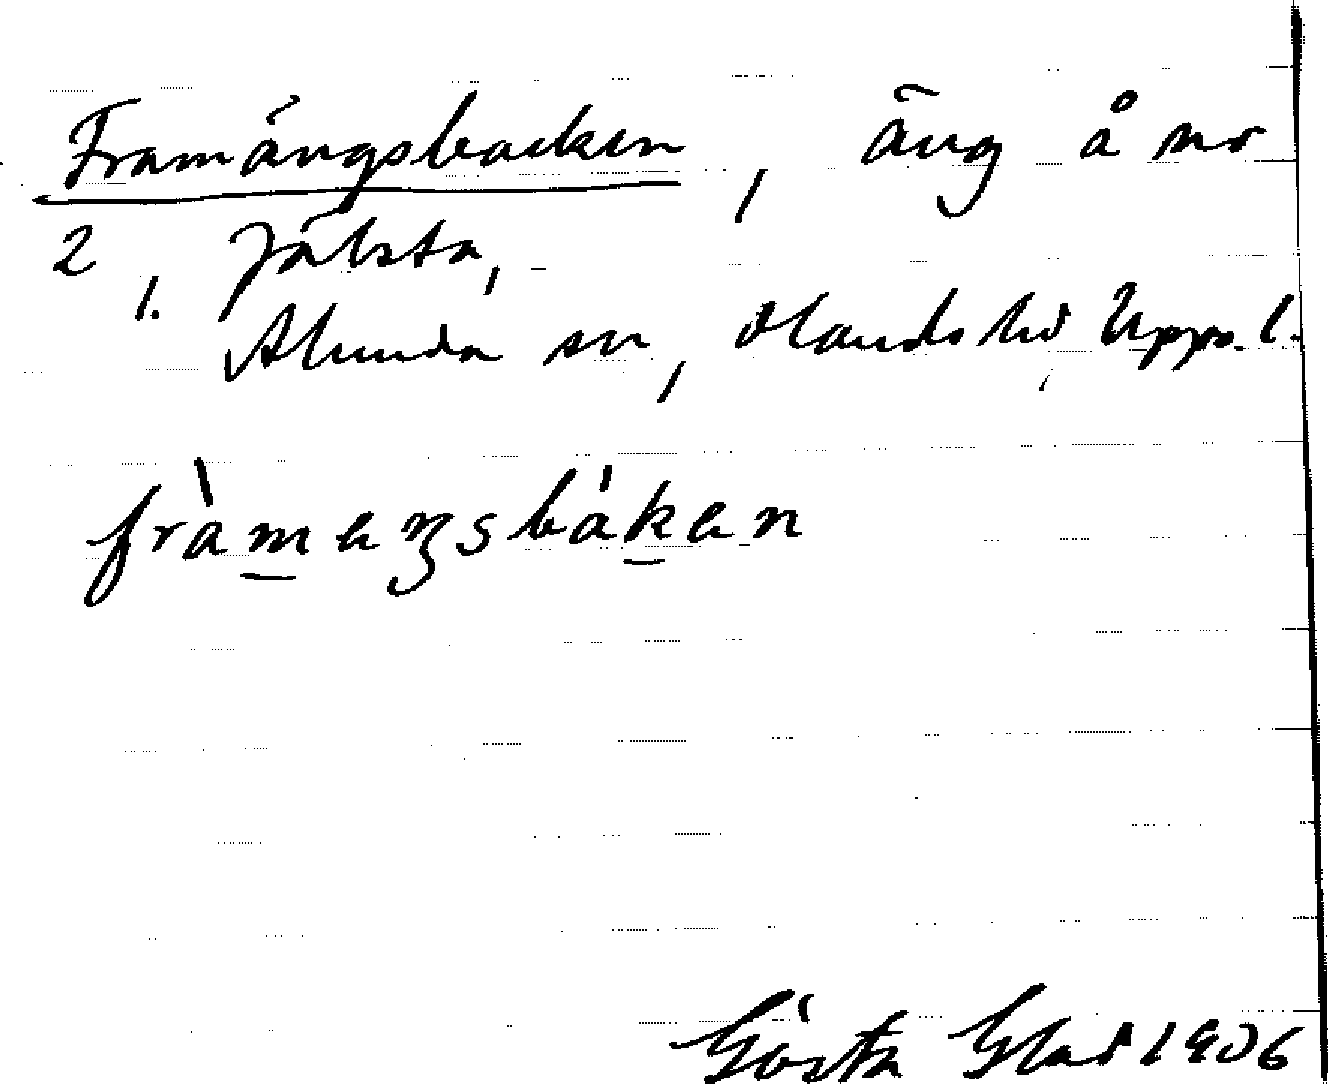 Framängsbacken, äng å nr
2 i. Jälsta,
Alunda sn, Olands hd Upps. l.
frameŋsbaken
Gösta Glad 1906